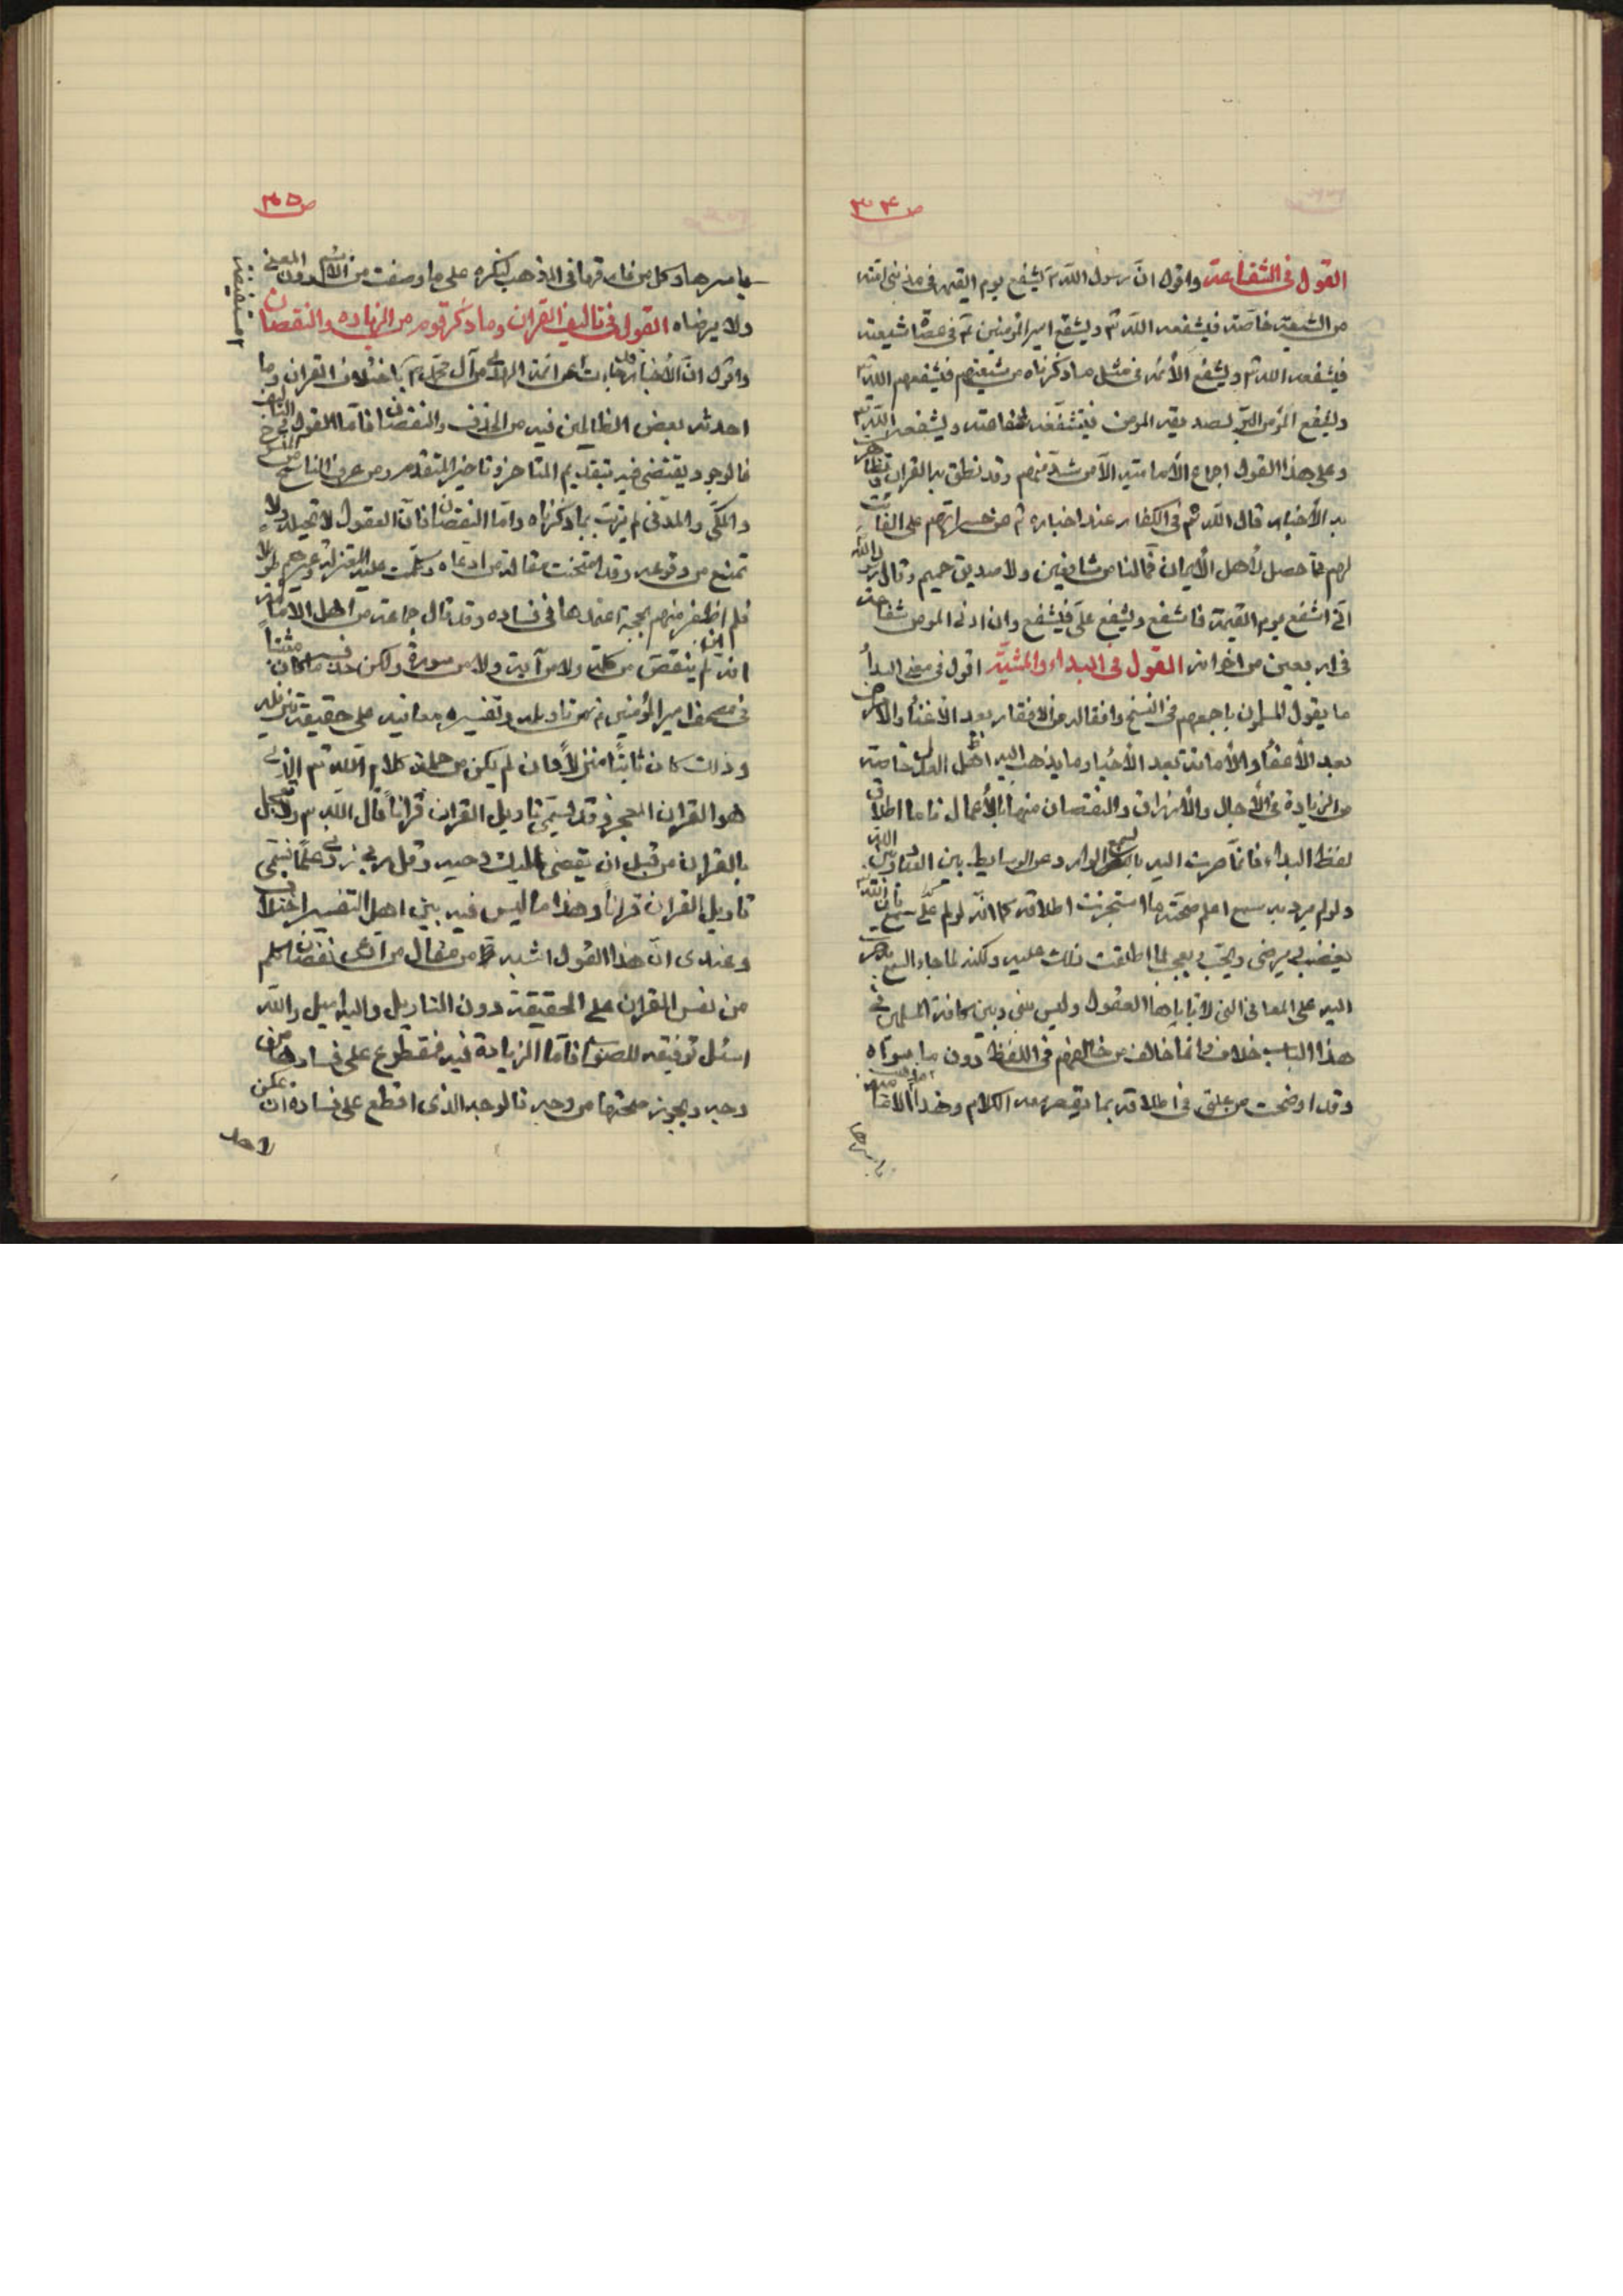 ص ٣٤
القول في الشفاعة واقول ان رسول الله ص يشفع يوم القيمة في مذنبي امته
من الشيعة خاصة فيشفعه الله تع ويشفع امير المؤمنين ع في عصاة شيعته
فيشفعه الله تع ويشفع الأئمة في مثل ما ذكرناه من شيعتهم فيشفعهم الله تع
ويشفع المؤمن البر لصديقه المؤمن فينشفعه شفاعته ويشفعه الله تع
وعلى هذا القول اجماع الأمامية الا من شذ منهم وقد نطق به القران وتظاهرت
به الأخبار قال الله تع في الكفار عند اخباره عن حسراتهم على الفائت
لهم مما حصل لأهل الأيمان فما لنا من شافعين ولا صديق حميم وقال رسول الله
انى اشفع يوم القيمة فاشفع ويشفع علي فيشفع وان ادنى المؤمن شفاعة
في اربعين من اخوانه القول في البداء والمشية اقول في معنى البداء
ما يقول المسلمون باجمعهم في النسخ وامثاله من الافقار بعد الأغناء والأمراض
بعد الأعفاء والأماتة بعد الأحياء وما يذهب اليه اهل العدل خاصة
من الزيادة في الأجال والأرزاق والنقصان منها بالأعمال فاما اطلاق
لفظ البداء فانما صرت اليه بالسمع الوارد عن الوسايط بين العباد وبين الله
ولو لم يرد به سمع اعلم صحته ما استجزت اطلاقه كما انه لو لم يرد علي سمع بان الله
يغضب ويرضى ويحب ويعجب لما اطلقت ذلك عليه ولكنه لما جاء السمع به صرت
اليه على المعاني التي لا تأباها العقول وليس بيني وبين كافة المسلمين في
هذا الباب خلاف وانما خالف من خالفهم في اللفظ دون ما سواه
وقد اوضحت من علتي في اطلاقه بما يقصر معه الكلام وهذا مذهب الامامية
باسرها
ص ٣٥
باسرها وكل من فارقها في المذهب ينكره على ما وصفت من الاسم دون المعنى
ولا يرضاه القول في تاليف القران وما ذكر قوم من الزيادة والنقصان
واقول ان الأخبار قد جاءت مستفيضة عن ائمة الهدى من آل محمد ص باختلاف القران وما
احدثه بعض الظالمين فيه من الحذف والنقصان فاما القول في التاليف
فالوجود يقتضي فيه بتقديم المتاخر وتاخير المتقدم ومن عرف الناسخ والمنسوخ
والمكي والمدني لم يرتب بما ذكرناه واما النقصان فان العقول لا تحيله ولا
تمنع من وقوعه وقد امتحنت مقالة من ادعاه وكلمت عليه المعتزلة وغيرهم طويلا
فلم اظفر منهم بحجة اعتمدها في فساده وقد قال جماعة من اهل الامامة
انه لم ينقص من كلمة ولا من آية ولا من سورة ولكن حذف ما كان مثبتا
في مصحف امير المؤمنين ع من تاويله وتفسير معانيه على حقيقة تنزيله
وذلك كان ثابتا منزلا وان لم يكن من جملة كلام الله تع الذي
هو القران المعجز وقد يسمى تاويل القران قرانا قال الله تع ولا تعجل
بالقران من قبل ان يقضى اليك وحيه وقل رب زدني علما فسمى
تاويل القران قرانا وهذا ما ليس فيه بين اهل التفسير اختلاف
وعندي ان هذا القول اشبه من مقال من ادعى نقصان كلم
من نفس القران على الحقيقة دون التاويل واليه اميل والله
اسئل توفيقه للصواب فاما الزيادة فيه فمقطوع على فسادها من
وجه ويجوز صحتها من وجه فالوجه الذي اقطع على فساده ان يمكن
لاحد